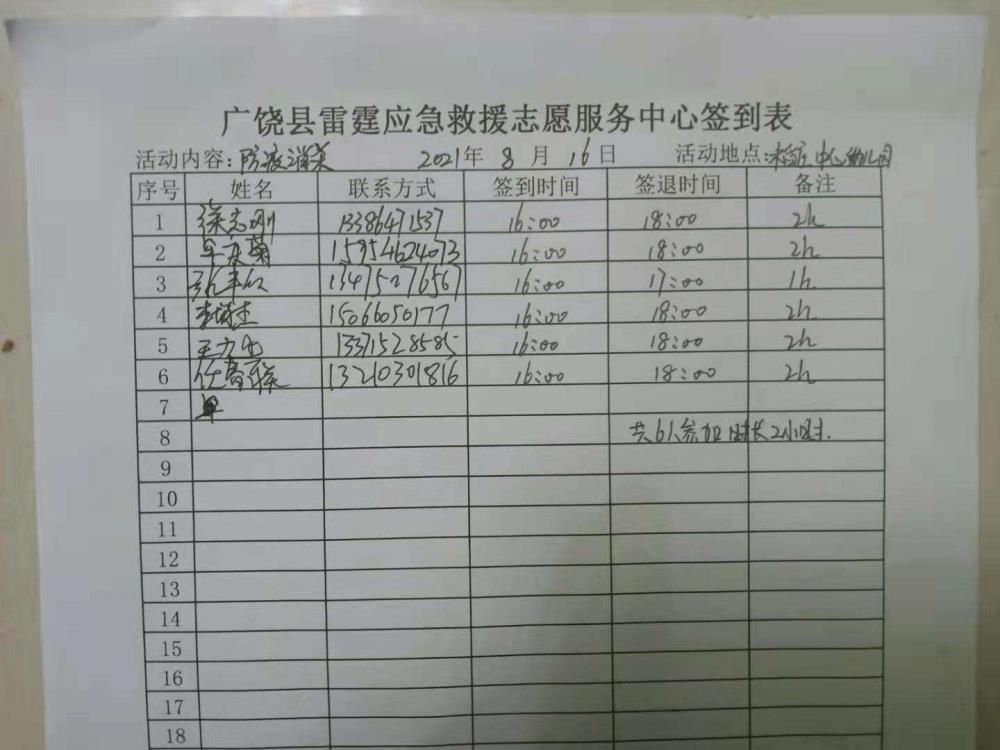 广饶县雷霆应急救援志愿服务中心签到表
活动内容：防疫消杀 2021年 8 月 16 日 活动地点：稻庄中心幼儿园
序号 姓名 联系方式 签到时间 签退时间 备注
1 徐志刚 13386471537 16:00 18:00 2h
2 15954624073 16:00 18:00 2h
3 13475276567 16:00 17:00 1h
4 15066050177 16:00 18:00 2h
5 13371528585 16:00 18:00 2h
6 13210301816 16:00 18:00 2h
7
8 共6人参加 时长2小时.
9
10
11
12
13
14
15
16
17
18